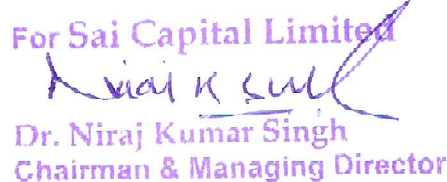 For Sai Capital Limited
Niraj K Singh
Dr. Niraj Kumar Singh
Chairman & Managing Director